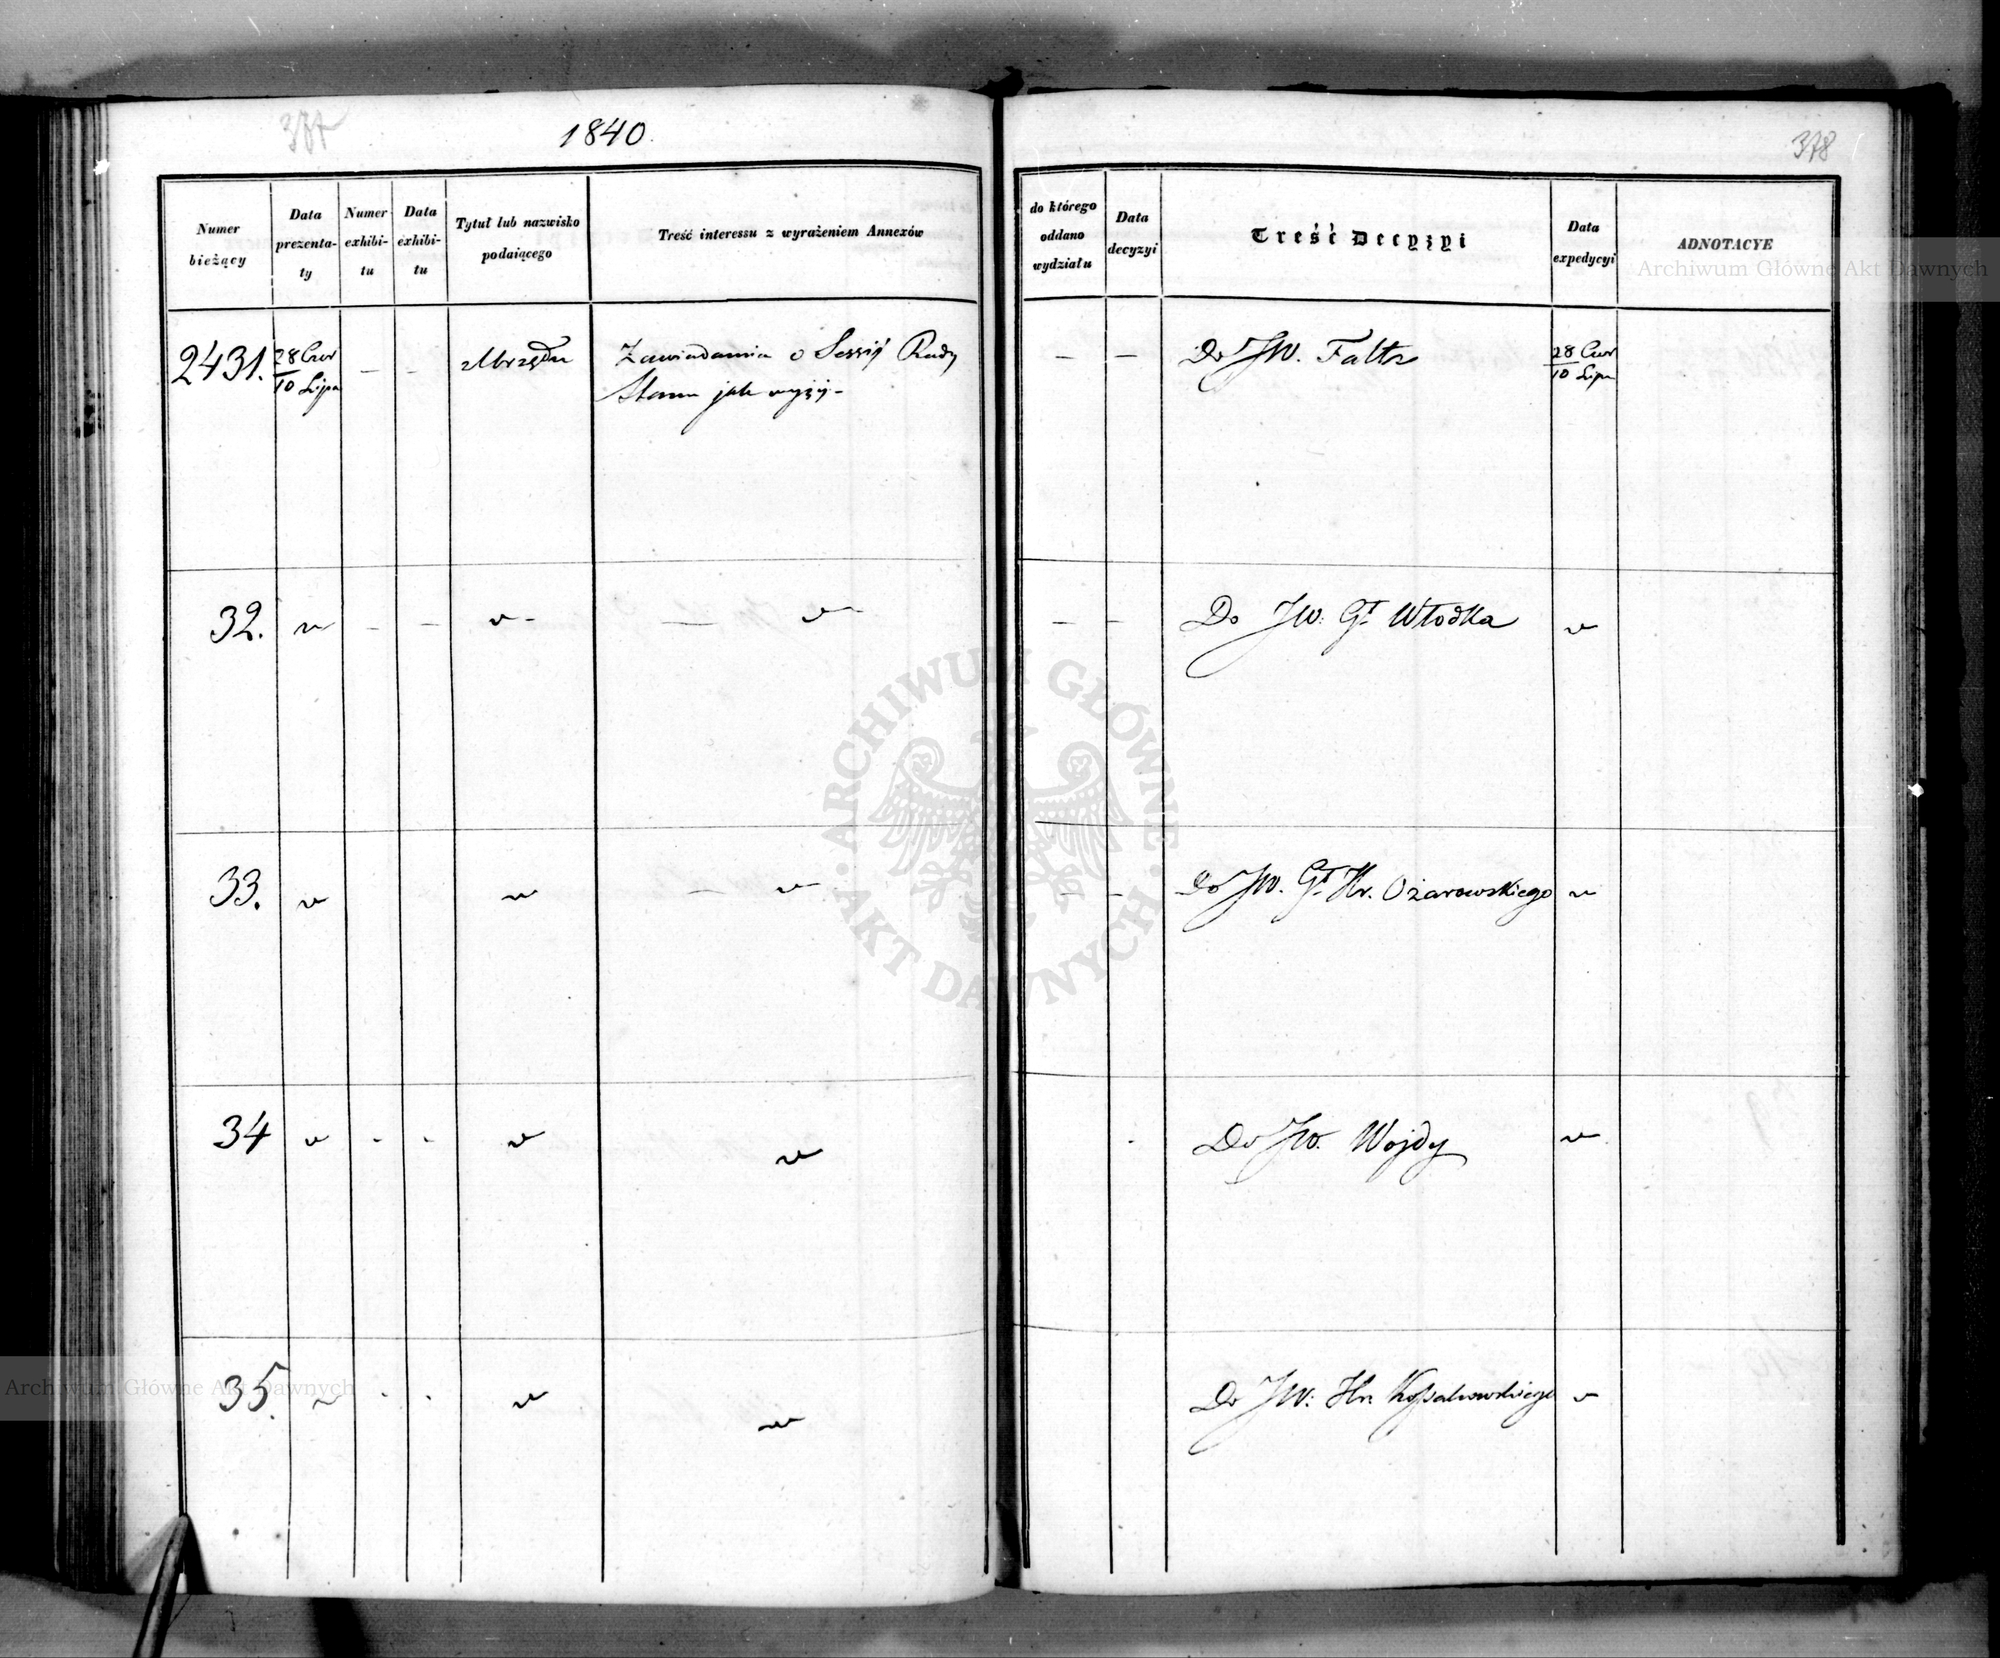 377
1840.
378
Numer bieżący
Data prezenta-ty
Numer exhibi-tu
Data exhibi-tu
Tytuł lub nazwisko podaiącego
Treść interessu z wyrażeniem Annexów
do którego oddano wydziału
Data decyzyi
Treść Decyzyi
Data expedycyi
ADNOTACYE
Archiwum Główne Akt Dawnych
2431. 28 Czer / 10 Lipa – – z Urzędu Zawiadamia o Sessij Rady – – Do JW. Faltz 28 Czer / 10 Lipa
Stanu jak wyżéj –
32. v – – v – — v – – Do JW: Gł Włodka v
33. v v – v – – Do JW. Gł Hr. Ożarowskiego v
34 v - - v v - Do JW. Wojdy v
35. v - - v v Do JW: Hr. Kossakowskiego v
ARCHIWUM GŁÓWNE · AKT DAWNYCH ·
Archiwum Główne Akt Dawnych